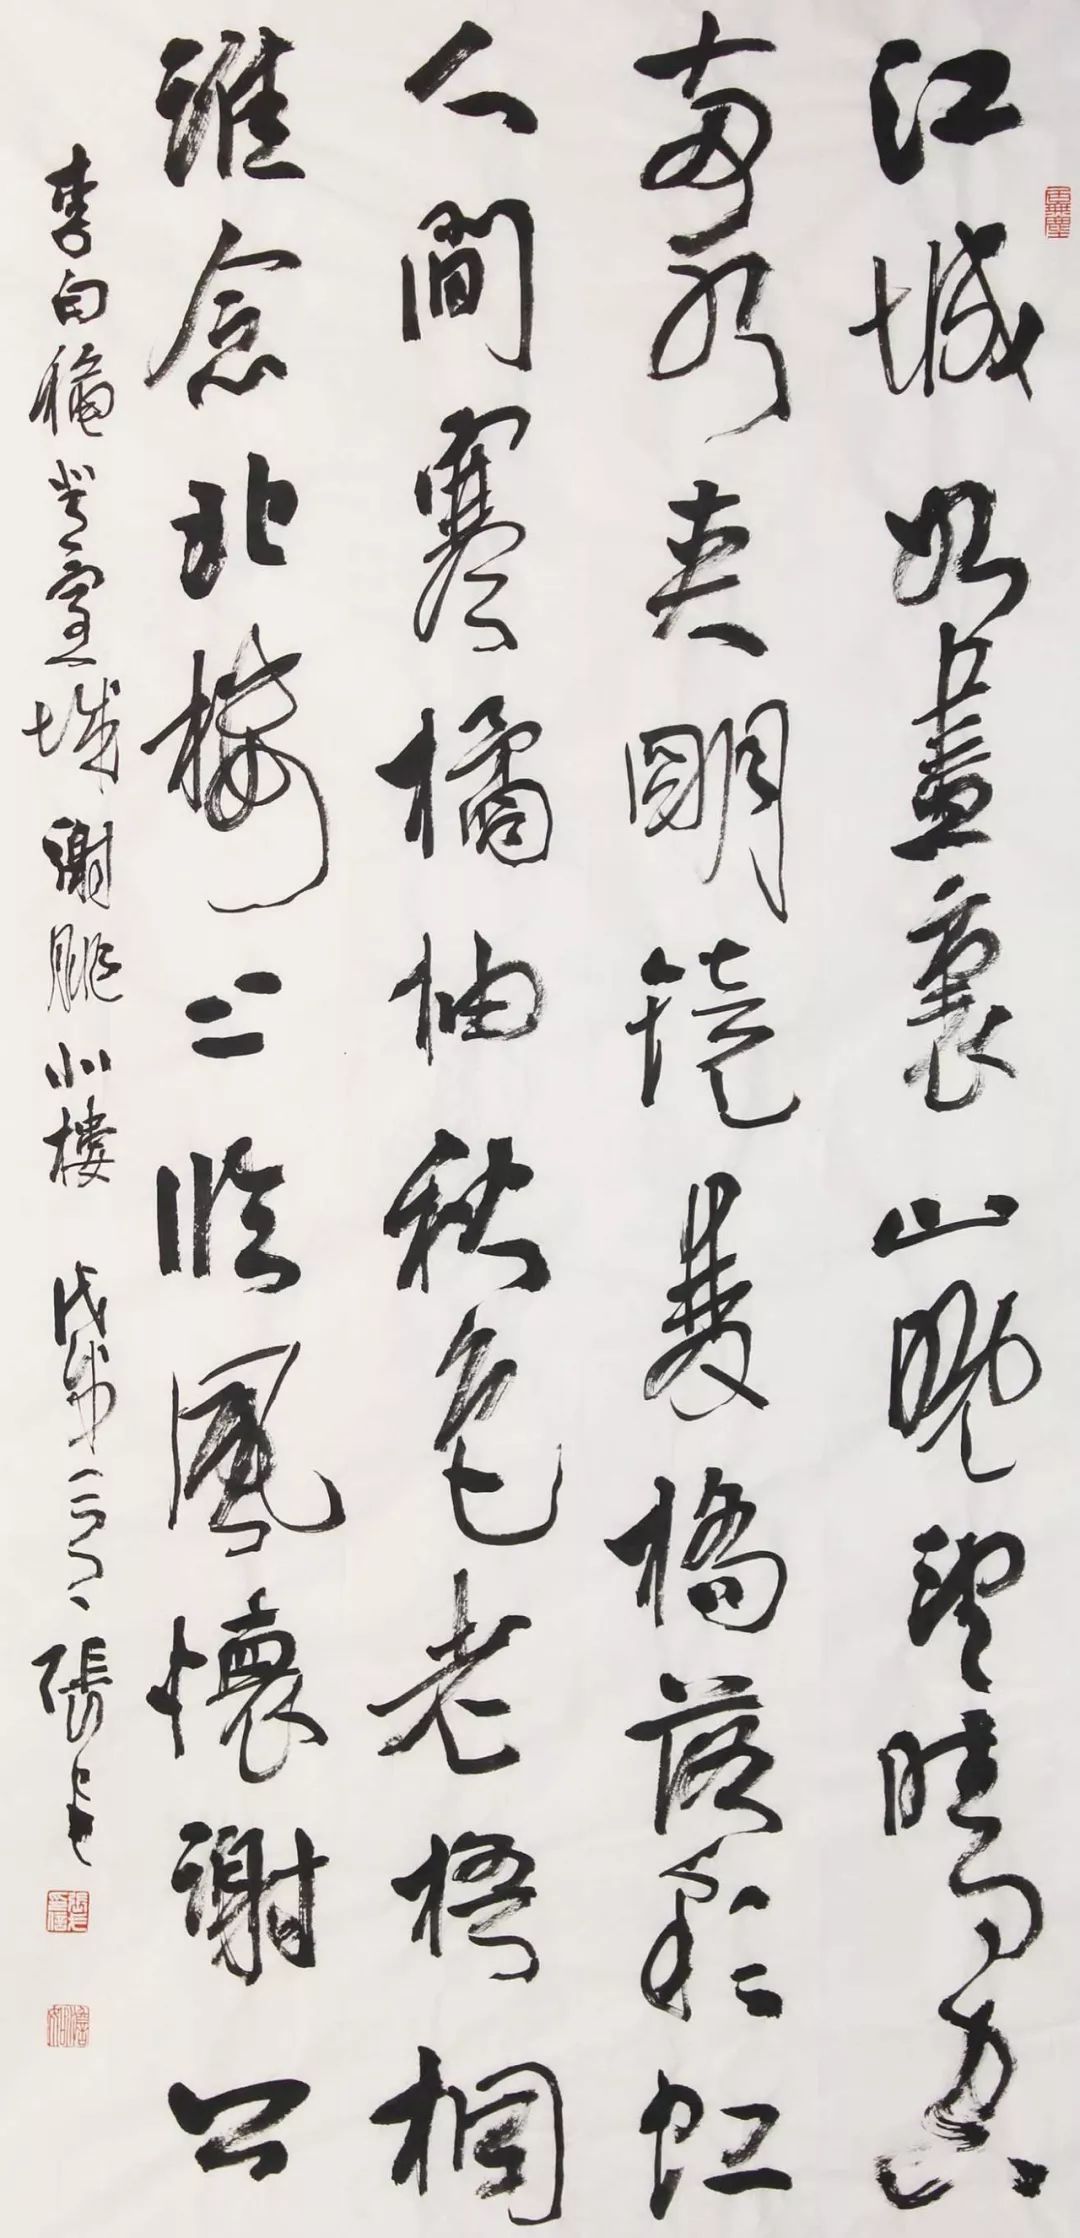 江城如畫裏山晚望晴空
兩水夾明鏡雙橋落彩虹
人間寒橘柚秋色老梧桐
誰念北樓上臨風懷謝公
李白龝登宣城謝朓北樓 戊戌 張